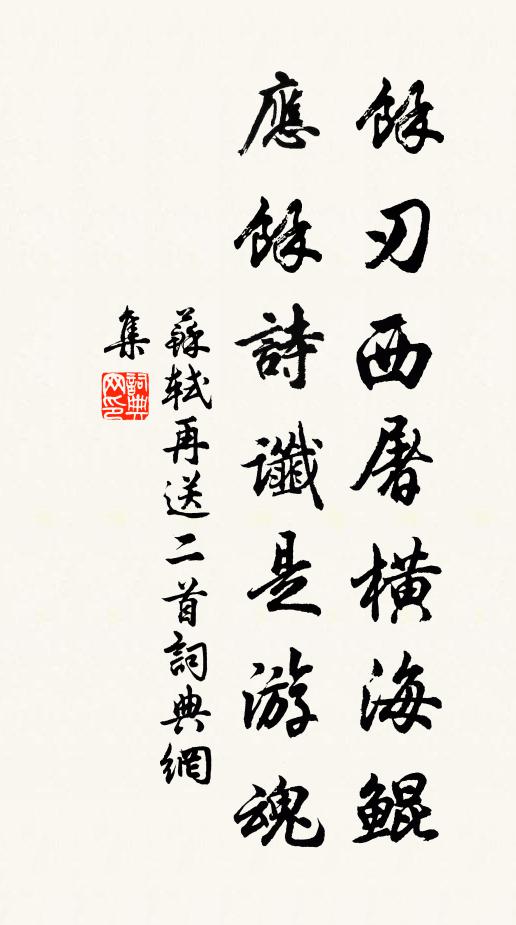 餘刃西屠橫海鲲
應餘詩谶是游魂
蘇軾再送二首詞典網
集
詞典
网印